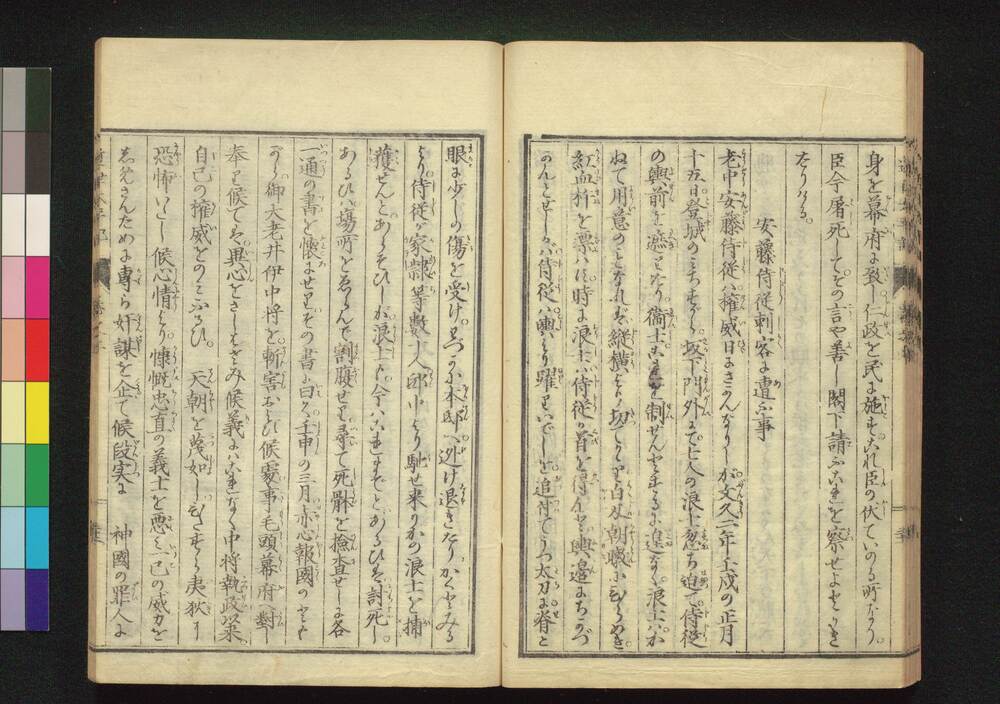 身を幕府に致し仁政を民に施す是れ臣の伏ていのる所なり
臣今屠死してその言や善し閣下請ふこれを察せよとかき
をりける
安藤侍従刺客に遭ふ事
老中安藤侍従は権威日にさかんなりしが文久二年壬戌の正月
十五日登城のみちすがら坂下門外にて七人の浪士忽ち迫て侍従
の輿前を遮きたり衛士これを制せんとするに遑なく浪士はか
ねて用意のことなれば縦横に切てかゝり白刃朝曦にひらめき
紅血杵を漂はす時に浪士ふ侍従の首を得んと輿邉にちかづ
かんとせしが侍従は輿より躍りいでしを追付てうつ太刀に脊と
眼に少しの傷を受けわづかに本邸へ迯け退きたりかくとみる
より侍従が家隷等数十人邸中より馳せ来りかの浪士を捕
獲せんとあらそひしが浪士も今はこれまでとあるひは討死し
あるひは場所をゑらんで割腹せり尋て死骸を撿査せしに各
一通の書を懐にせりその書に曰く壬申の三月赤心報國のともが
ら御大老井伊中将を斬害および候處事毛頭幕府へ對し
奉り候て異心をさしはさみ候義にはこれなく中将執政以来
自己の権威をのみふるひ 天朝を蔑如しひたすら夷狄を
恐怖いたし候心情より慷慨忠直の義士を悪み一己の威力を
しめさんために専ら奸謀を企て候段実に 神國の罪人に